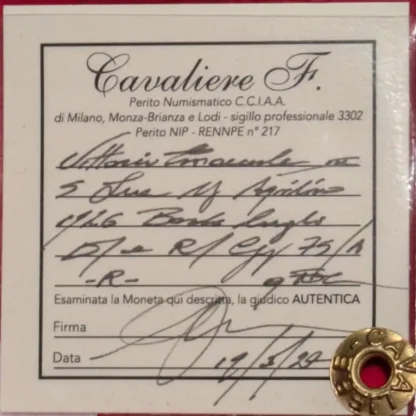 Cavaliere F.
Perito Numismatico C.C.I.A.A.
di Milano, Monza-Brianza e Lodi - sigillo professionale 3302
Perito NIP - RENNPE n° 217
Vittorio Emanuele III
5 Lire
1926 Bordo largo
75/A
-R- qFDC
Esaminata la Moneta qui descritta, la giudico AUTENTICA
Firma
Data 19/3/24
CAVALIERE